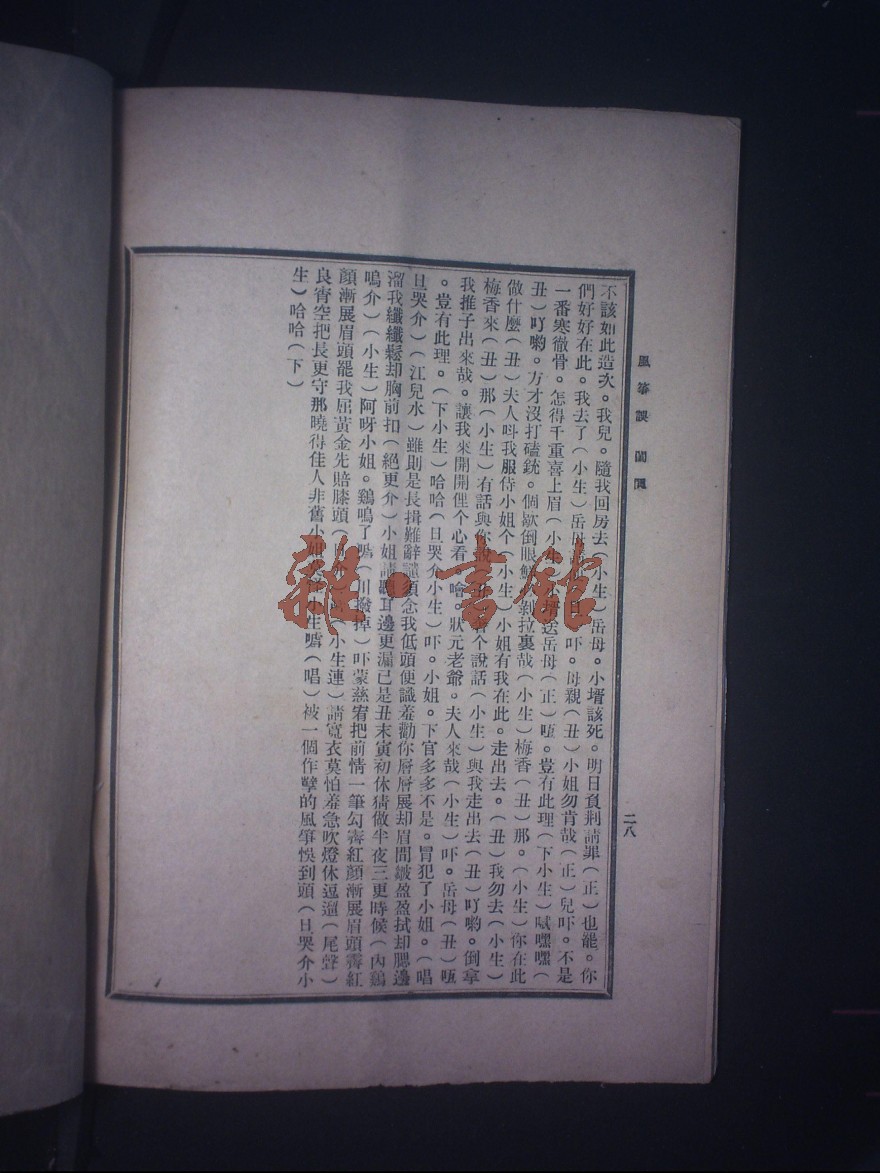 風箏誤 閨鬧
二八
不該如此造次。我兒。隨我回房去(小生)岳母。小壻該死。明日負荆請罪(正)也罷。你
們好好在此。我去了(小生)岳母 旦 吓。母親(丑)小姐勿肯哉(正)兒吓。不是
一番寒徹骨。怎得千重喜上眉(小生)小壻送岳母(正)咺。豈有此理(下小生)賦嘿嘿(
丑)吖喲。方才沒打磕銃。個歇倒眼鮮 剝拉裏哉(小生)梅香(丑)那。(小生)你在此
做什麼(丑)夫人呌我服侍小姐个(小生)小姐有我在此。走出去。(丑)我勿去(小生)
梅香來(丑)那(小生)有話與你說(丑)有个說話(小生)與我走出去(丑)吖喲。倒拿
我推子出來哉。讓我來開開俚个心看。噲。狀元老爺。夫人來哉(小生)吓。岳母(丑)咺
。豈有此理。(下小生)哈哈(旦哭介小生)吓。小姐。下官多多不是。冒犯了小姐。(唱
旦哭介)(江兒水)雖則是長揖難辭譴須念我低頭便識羞勸你層層展却眉間皺盈盈拭却腮邊
溜我纖纖鬆却胸前扣(絕更介)小姐請聽耳邊更漏已是丑末寅初休猜做半夜三更時候(內鷄
鳴介)(小生)阿呀小姐。鷄鳴了嘘(川撥掉)吓蒙慈宥把前情一筆勾霽紅顏漸展眉頭霽紅
顏漸展眉頭罷我屈黃金先賠膝頭(旦 (小生連)請寬衣莫怕羞急吹燈休逗遛(尾聲)
良宵空把長更守那曉得佳人非舊小姐 小生嘘(唱)被一個作孽的風箏悞到頭(旦哭介小
生)哈哈(下)
雜·書館